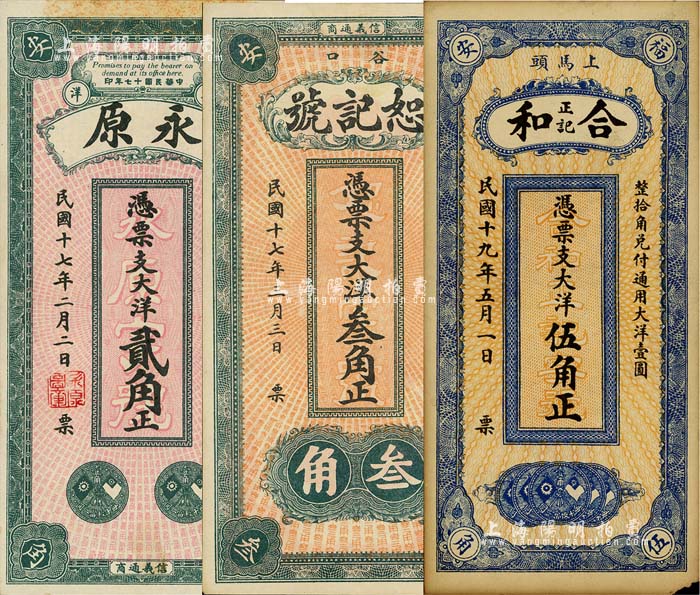 安
Promises to pay the bearer on
demand at its office here.
中華民國十七年印
洋
永原
憑票支大洋貳角正
民國十七年二月二日
票
角
信義通商
信義通商
安
谷口
恕記號
憑票支大洋叁角正
民國十七年 月三日
票
叁角
叁
安
福
上馬頭
合和
正記
整拾角兌付通用大洋壹圓
憑票支大洋伍角正
民國十九年五月一日
票
角
伍
上海陽明拍賣
www.yangmingauction.com